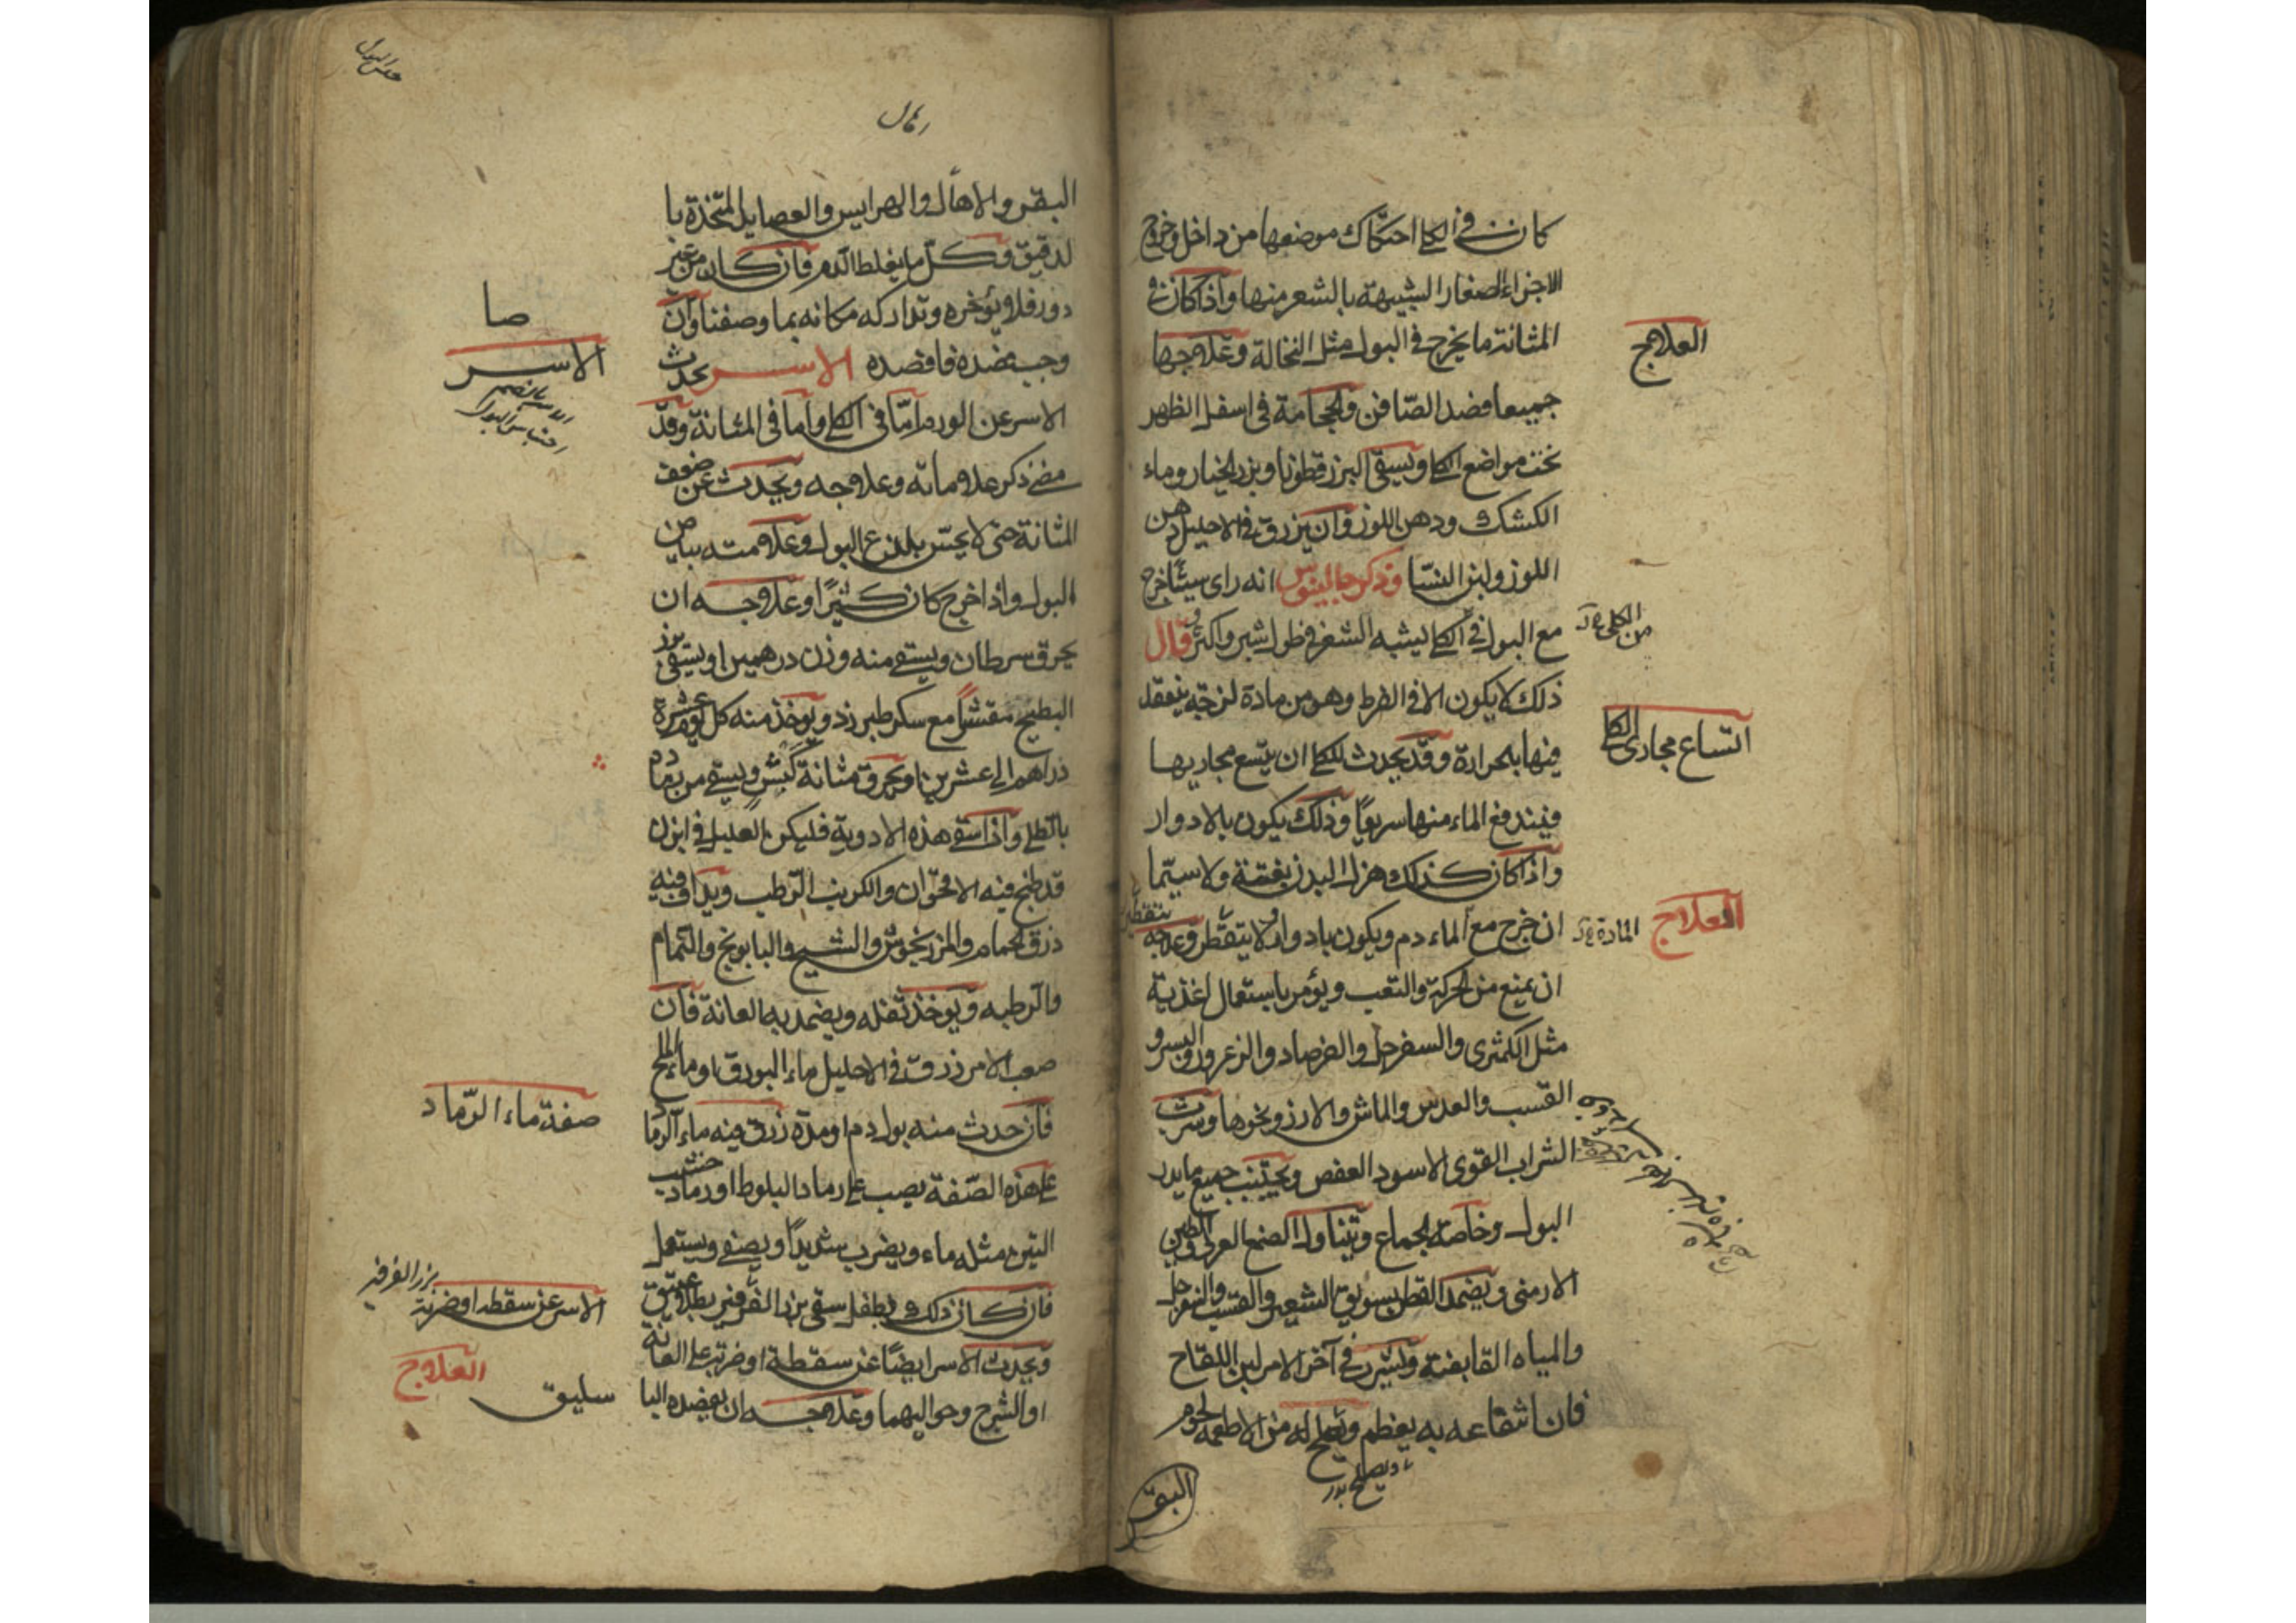 كان في الكلى احتكاك موضعها من داخل وخروج
الاجزاء الصغار الشبيهة بالشعر منها واذا كان في
المثانة ما يخرج في البول مثل النخالة وعلاجها
العلاج
جميعا فصد الصافن والحجامة في اسفل الظهر
تحت مواضع الكلى ويسقى البزرقطونا وبزر الخيار وماء
الكشك ودهن اللوز وان يزرق في الاحليل دهن
اللوز ولبن النسا وذكر جالينوس انه راى شيئا خرج
مع البول في الكلى يشبه الشعر في طول شبر واكثر وقال
من الكلى
ذلك لا يكون الا في الفرط وهو من مادة لزجة ينعقد
فيها بحرارة وقد يحدث للكلى ان يتسع مجاريها
اتساع مجارى الكلى
فيندفع الماء منها سريعا وذلك يكون بالادوار
واذا كان كذلك هزل البدن بغتة ولا سيما
ان خرج مع الماء دم ويكون بادوار ولا يتقطر وعلاجه
المادة
العلاج
ان يمنع من الحركة والتعب ويؤمر باستعمال اغذية
مثل الكمثرى والسفرجل والفرصاد والزعرور والبسر و
القسب والعدس والماش والارز ونحوها وشرب
الشراب القوى الاسود العفص ويجتنب جميع ما يدر
البول وخاصة الجماع ويتناول الصمغ العربى والطين
الارمنى ويضمد القطن بسويق الشعير والقسب والسفرجل
والمياه القابضة ويشرب في آخر الامر لبن اللقاح
فان انتفاعه به يعظم ويصلح له من الاطعمة لحوم
البقر
البقر والاهال والهرايس والعصايد المتخذة با
لدقيق وكل ما يغلظ الدم فان كان من غير
دور فلا يؤخره وتداركه مكانه بما وصفنا وان
وجب فصده فافصده الاسر يحدث
الاسر
الاسر بالضم
احتباس البول
الاسر عن الورم اما في الكلى واما في المثانة وقد
مضى ذكر علاماته وعلاجه ويحدث عن ضعف
المثانة حتى لا يحس بلذع البول وعلامته بياض
البول واذا خرج كان كثيرا وعلاجه ان
يحرق سرطان ويسقى منه وزن درهمين او يسقى بزر
البطيخ مقشرا مع سكر طبرزد ويوخذ منه كل يوم عشرة
دراهم الى عشرين او يحرق مثانة كبش ويسقى من رماده
بالطلى واذا سقى هذه الادوية فليكن العليل في ابزن
قد طبخ فيه الاقحوان والكرنب الرطب ويداف فيه
ذرق الحمام والمرزنجوش والشيح والبابونج والنمام
والرطبه ويوخذ ثفله ويضمد به العانة فان
صعب الامر زرق في الاحليل ماء البورق او ماء الملح
فان حدث منه بول دم او مدة زرق فيه ماء الرماد
صفة ماء الرماد
على هذه الصفة يصب على رماد البلوط او رماد خشب
التين مثله ماء ويضرب شديدا ويصفى ويستعمل
فان كان ذلك بطفل سقى بزر الفرفير بطلا عتيق
بزر الفرفير
ويحدث الاسر ايضا عن سقطة او ضربة على العانة
الاسر عن سقطه او ضربة
او الشرج وحواليهما وعلاجه ان يفصده البا
العلاج
سليق